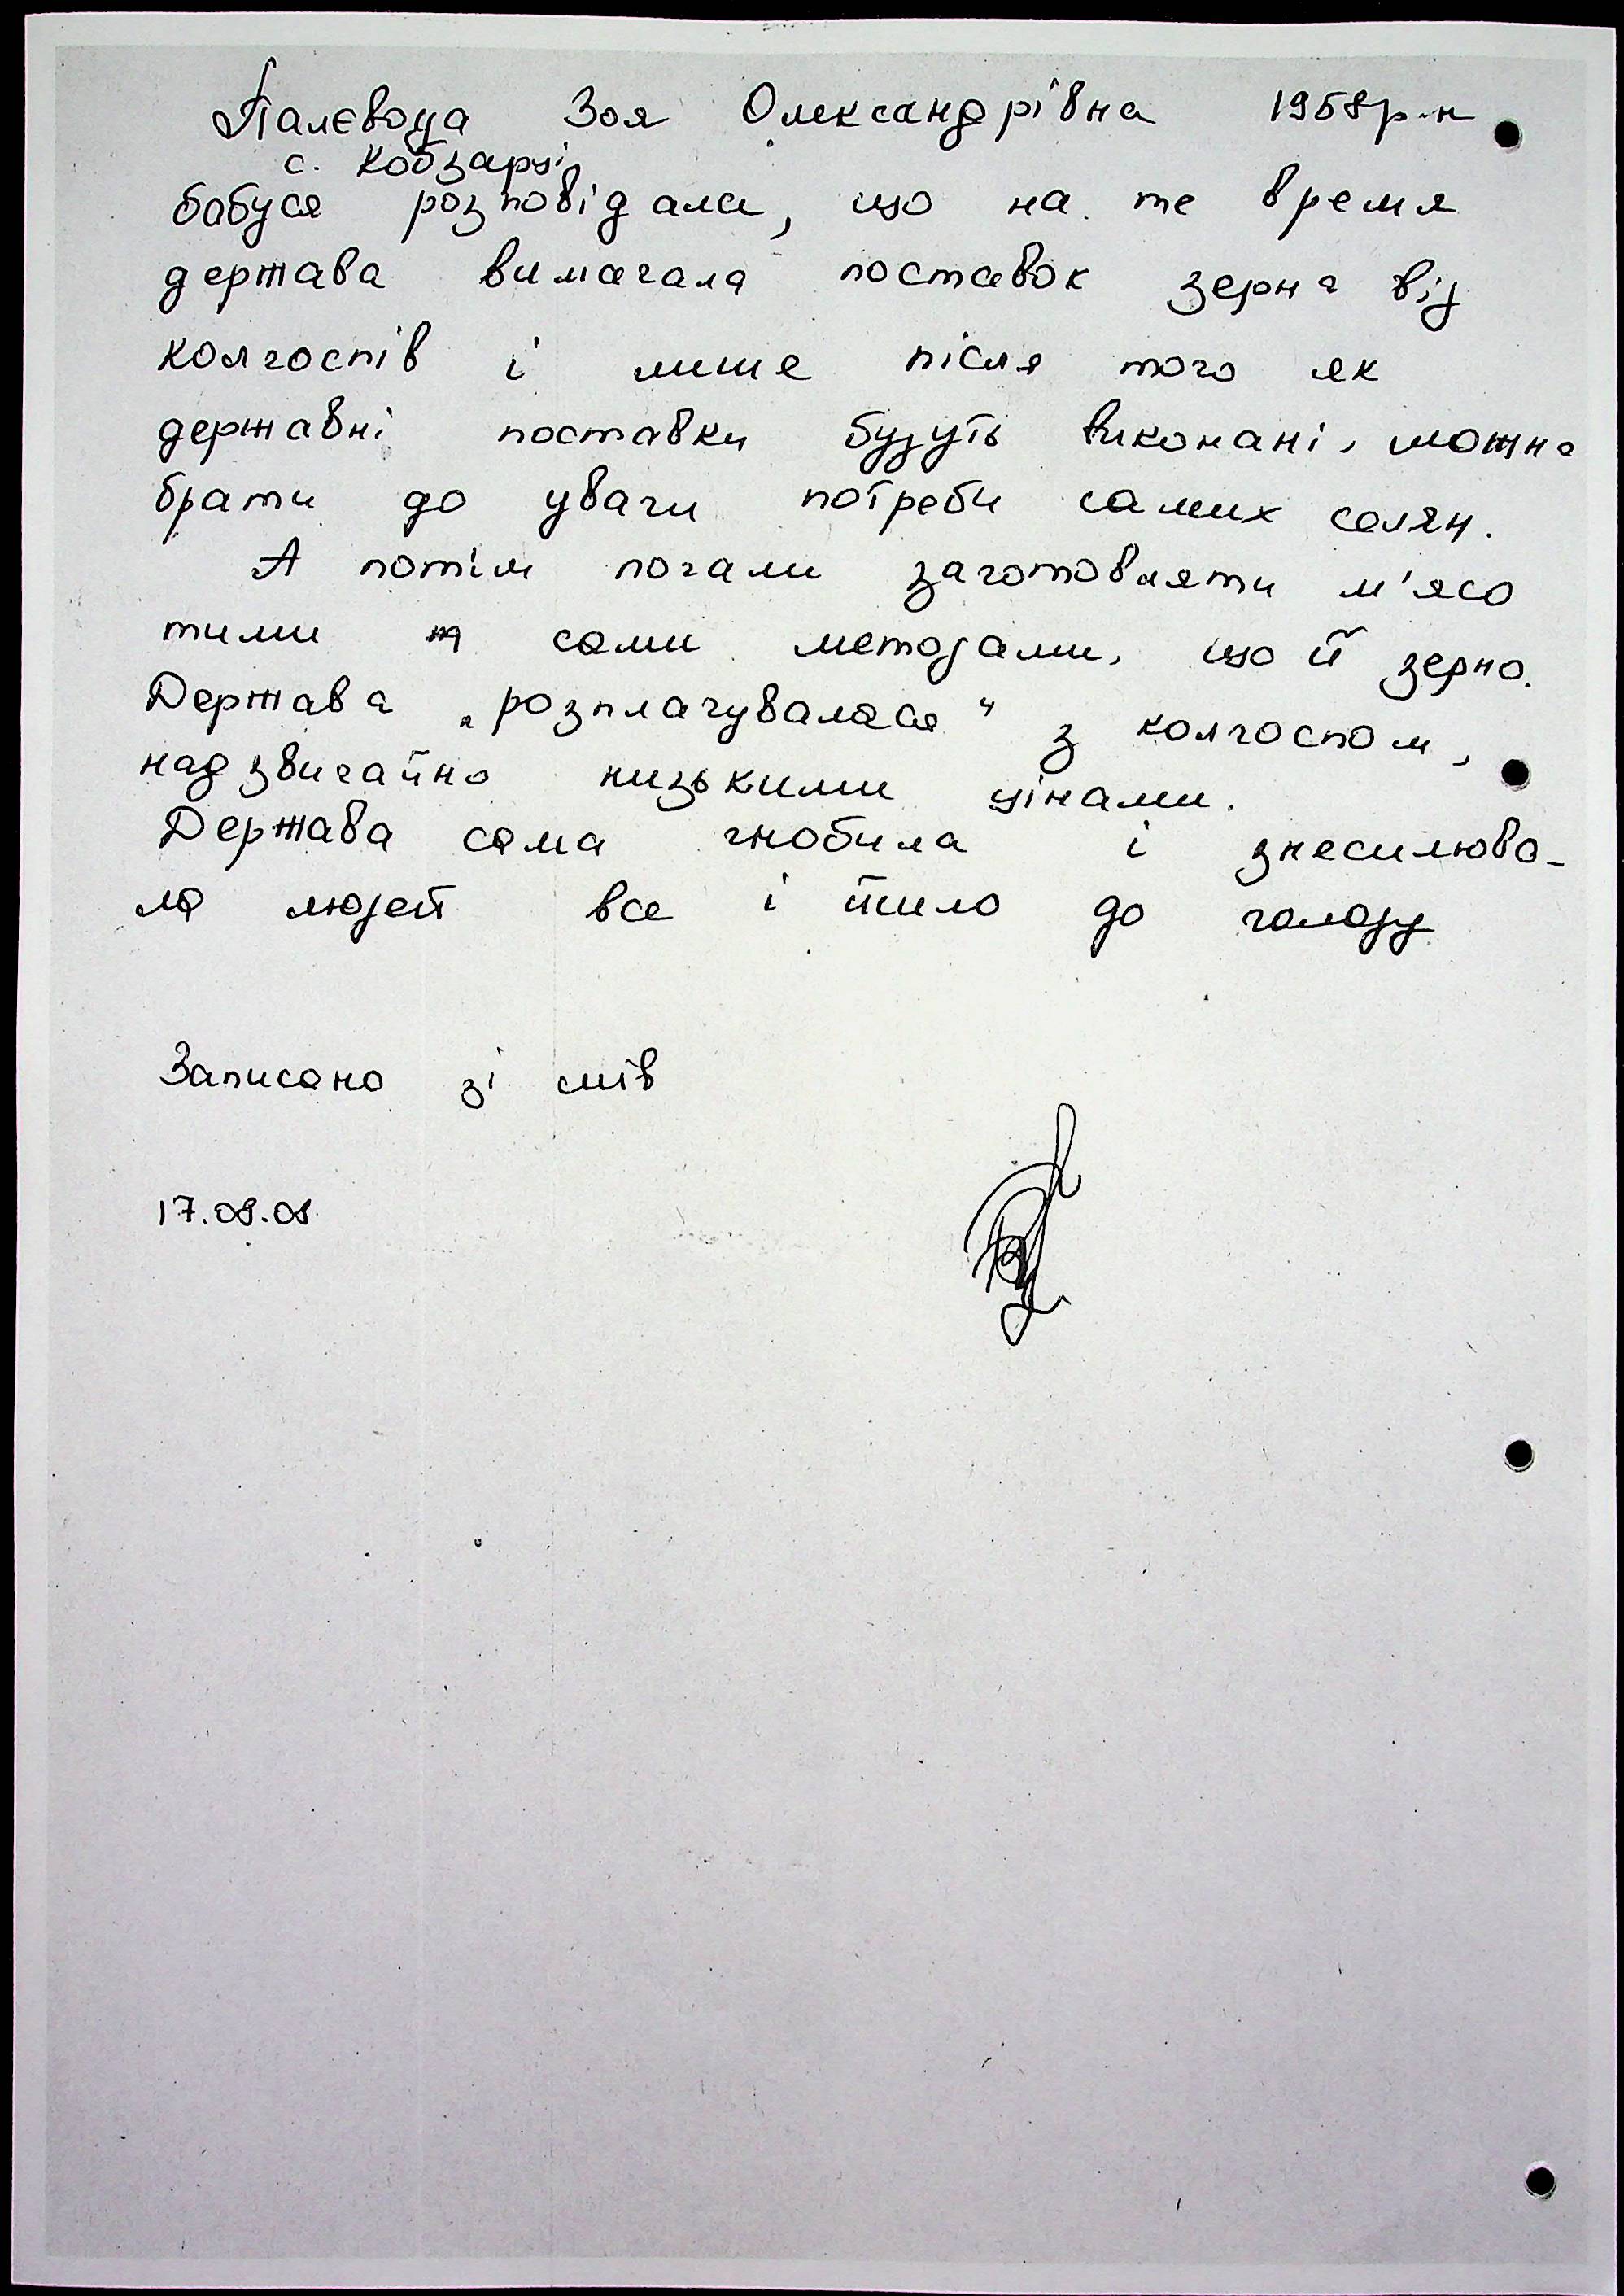 Палєвода Зоя Олександрівна 1958р.н
с. Кобзарці
бабуся розповідала, що на те время
держава вимагала поставок зерна від
колгоспів і лише після того як
державні поставки будуть виконані, можна
брати до уваги потреби самих селян.
А потім почали заготовляти м'ясо
тими ж сами методами, що й зерно.
Держава „розплачувалася" з колгоспом,
надзвичайно низькими цінами.
Держава сама гнобила і знесилюва-
ла людей все і йшло до голоду
Записано зі слів
17.09.08